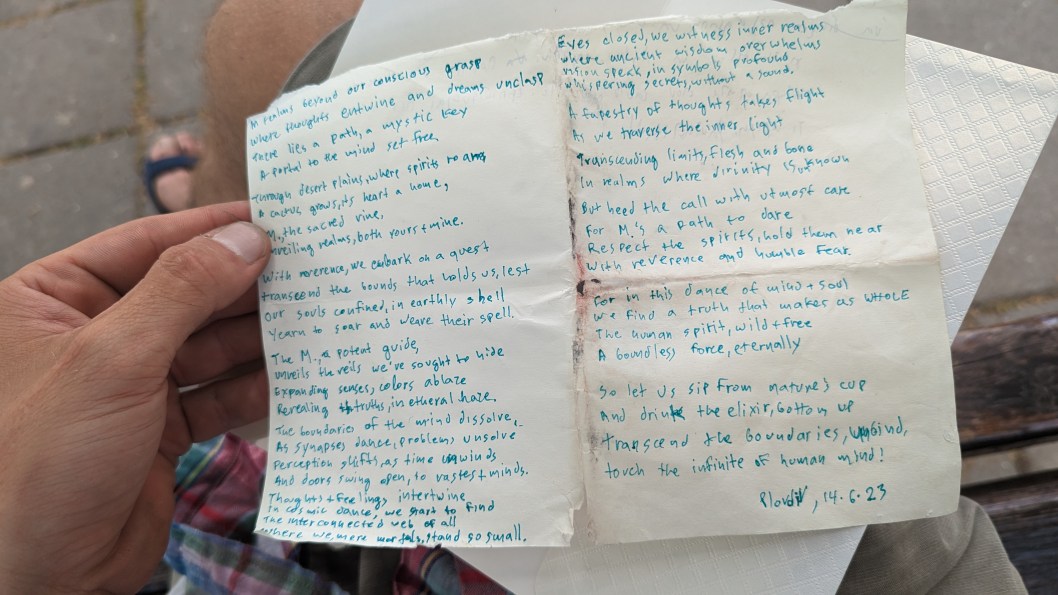 M realms beyond our conscious grasp
Where thoughts entwine and dreams unclasp
There lies a path, a mystic key
A portal to the mind set free.
Through desert plains, where spirits roam
A cactus grows, its heart a home,
M., the sacred vine,
Unveiling realms, both yours + mine.
With reverence, we embark on a quest
transcend the bounds that holds us, lest
Our souls confined, in earthly shell
Yearn to soar and weave their spell.
The M., a potent guide,
unveils the veils we've sought to hide
Expanding senses, colors ablaze
Revealing truths, in etheral haze.
The boundaries of the mind dissolve,
As synapses dance, problems unsolve
Perception shifts, as time unwinds
And doors swing open, to vastest minds.
Thoughts + feelings intertwine
In cosmic dance, we start to find
The interconnected web of all
Where we, mere mortals, stand so small.
Eyes closed, we witness inner realms
where ancient wisdom overwhelms
vision speak, in symbols profound
whispering secrets, without a sound.
A tapestry of thoughts takes flight
As we traverse the inner light
Transcending limits, flesh and bone
In realms where divinity is known
But heed the call with utmost care
For M.'s a path to dare
Respect the spirits, hold them near
With reverence and humble fear
For in this dance of mind + soul
We find a truth that makes as WHOLE
The human spirit, wild + free
A boundless force, eternally
So let us sip from nature's cup
And drink the elixir, bottom up
Transcend the boundaries, unbind,
touch the infinite of human mind!
14.6.23